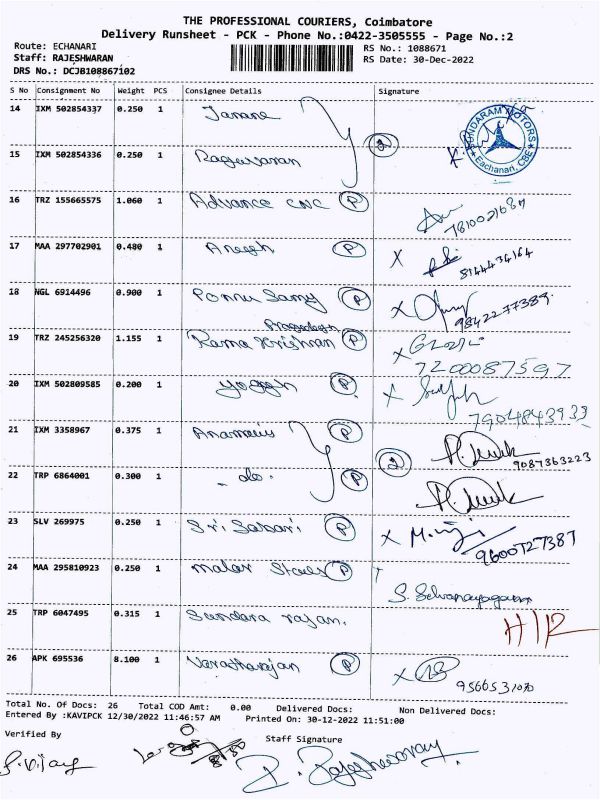 THE PROFESSIONAL COURIERS, Coimbatore
Delivery Runsheet - PCK - Phone No.:0422-3505555 - Page No.:2
Route: ECHANARI RS No.: 1088671
Staff: RAJESHWARAN RS Date: 30-Dec-2022
DRS No.: DCJB108867102
S No Consignment No Weight PCS Consignee Details Signature
14 IXM 502854337 0.250 1
SUNDARAM MOTORS
Eachanari, CBE
2
15 IXM 502854336 0.250 1
16 TRZ 155665575 1.060 1 Advance CNC P
17 MAA 297702901 0.480 1 P X
8144434164
18 NGL 6914496 0.900 1 Ponnu Samy P X
9842277389
19 TRZ 245256320 1.155 1 Rama Krishnan P X
7200087597
20 IXM 502809585 0.200 1 Yogesh P X
7904843933
21 IXM 3358967 0.375 1 P
9087363223
2
22 TRP 6864001 0.300 1 - do. P
23 SLV 269975 0.250 1 Sri Sabari P X
9600727387
24 MAA 295810923 0.250 1 malar Steels P
S. Selvanayagam
25 TRP 6047495 0.315 1 Sundara rajan.
26 APK 695536 8.100 1 Varatharajan P X
9566531070
Total No. Of Docs: 26 Total COD Amt: 0.00 Delivered Docs: Non Delivered Docs:
Entered By :KAVIPCK 12/30/2022 11:46:57 AM Printed On: 30-12-2022 11:51:00
Verified By Staff Signature